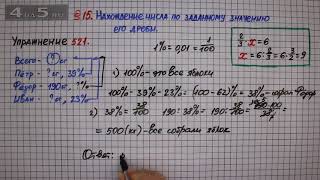 4 на 5
§ 15. Нахождение числа по заданному значению
его дроби.
Упражнение 521.
Всего - ? кг
Пётр - ? кг, 39%
Фёдор - 190 кг, ?%
Иван - ? кг, 23%
1% = 0,01 = 1/100
1) 100% - это все яблоки
100% - 39% - 23% = (100 - 62)% = 38% - собрал Фёдор
2) 38% = 38/100 190 : 38% = 190 : 38/100 =
= 500 (кг) - все собрали яблок
Ответ:
2/3 x = 6
x = 6 : 2/3 = 6 · 3/2 = 9